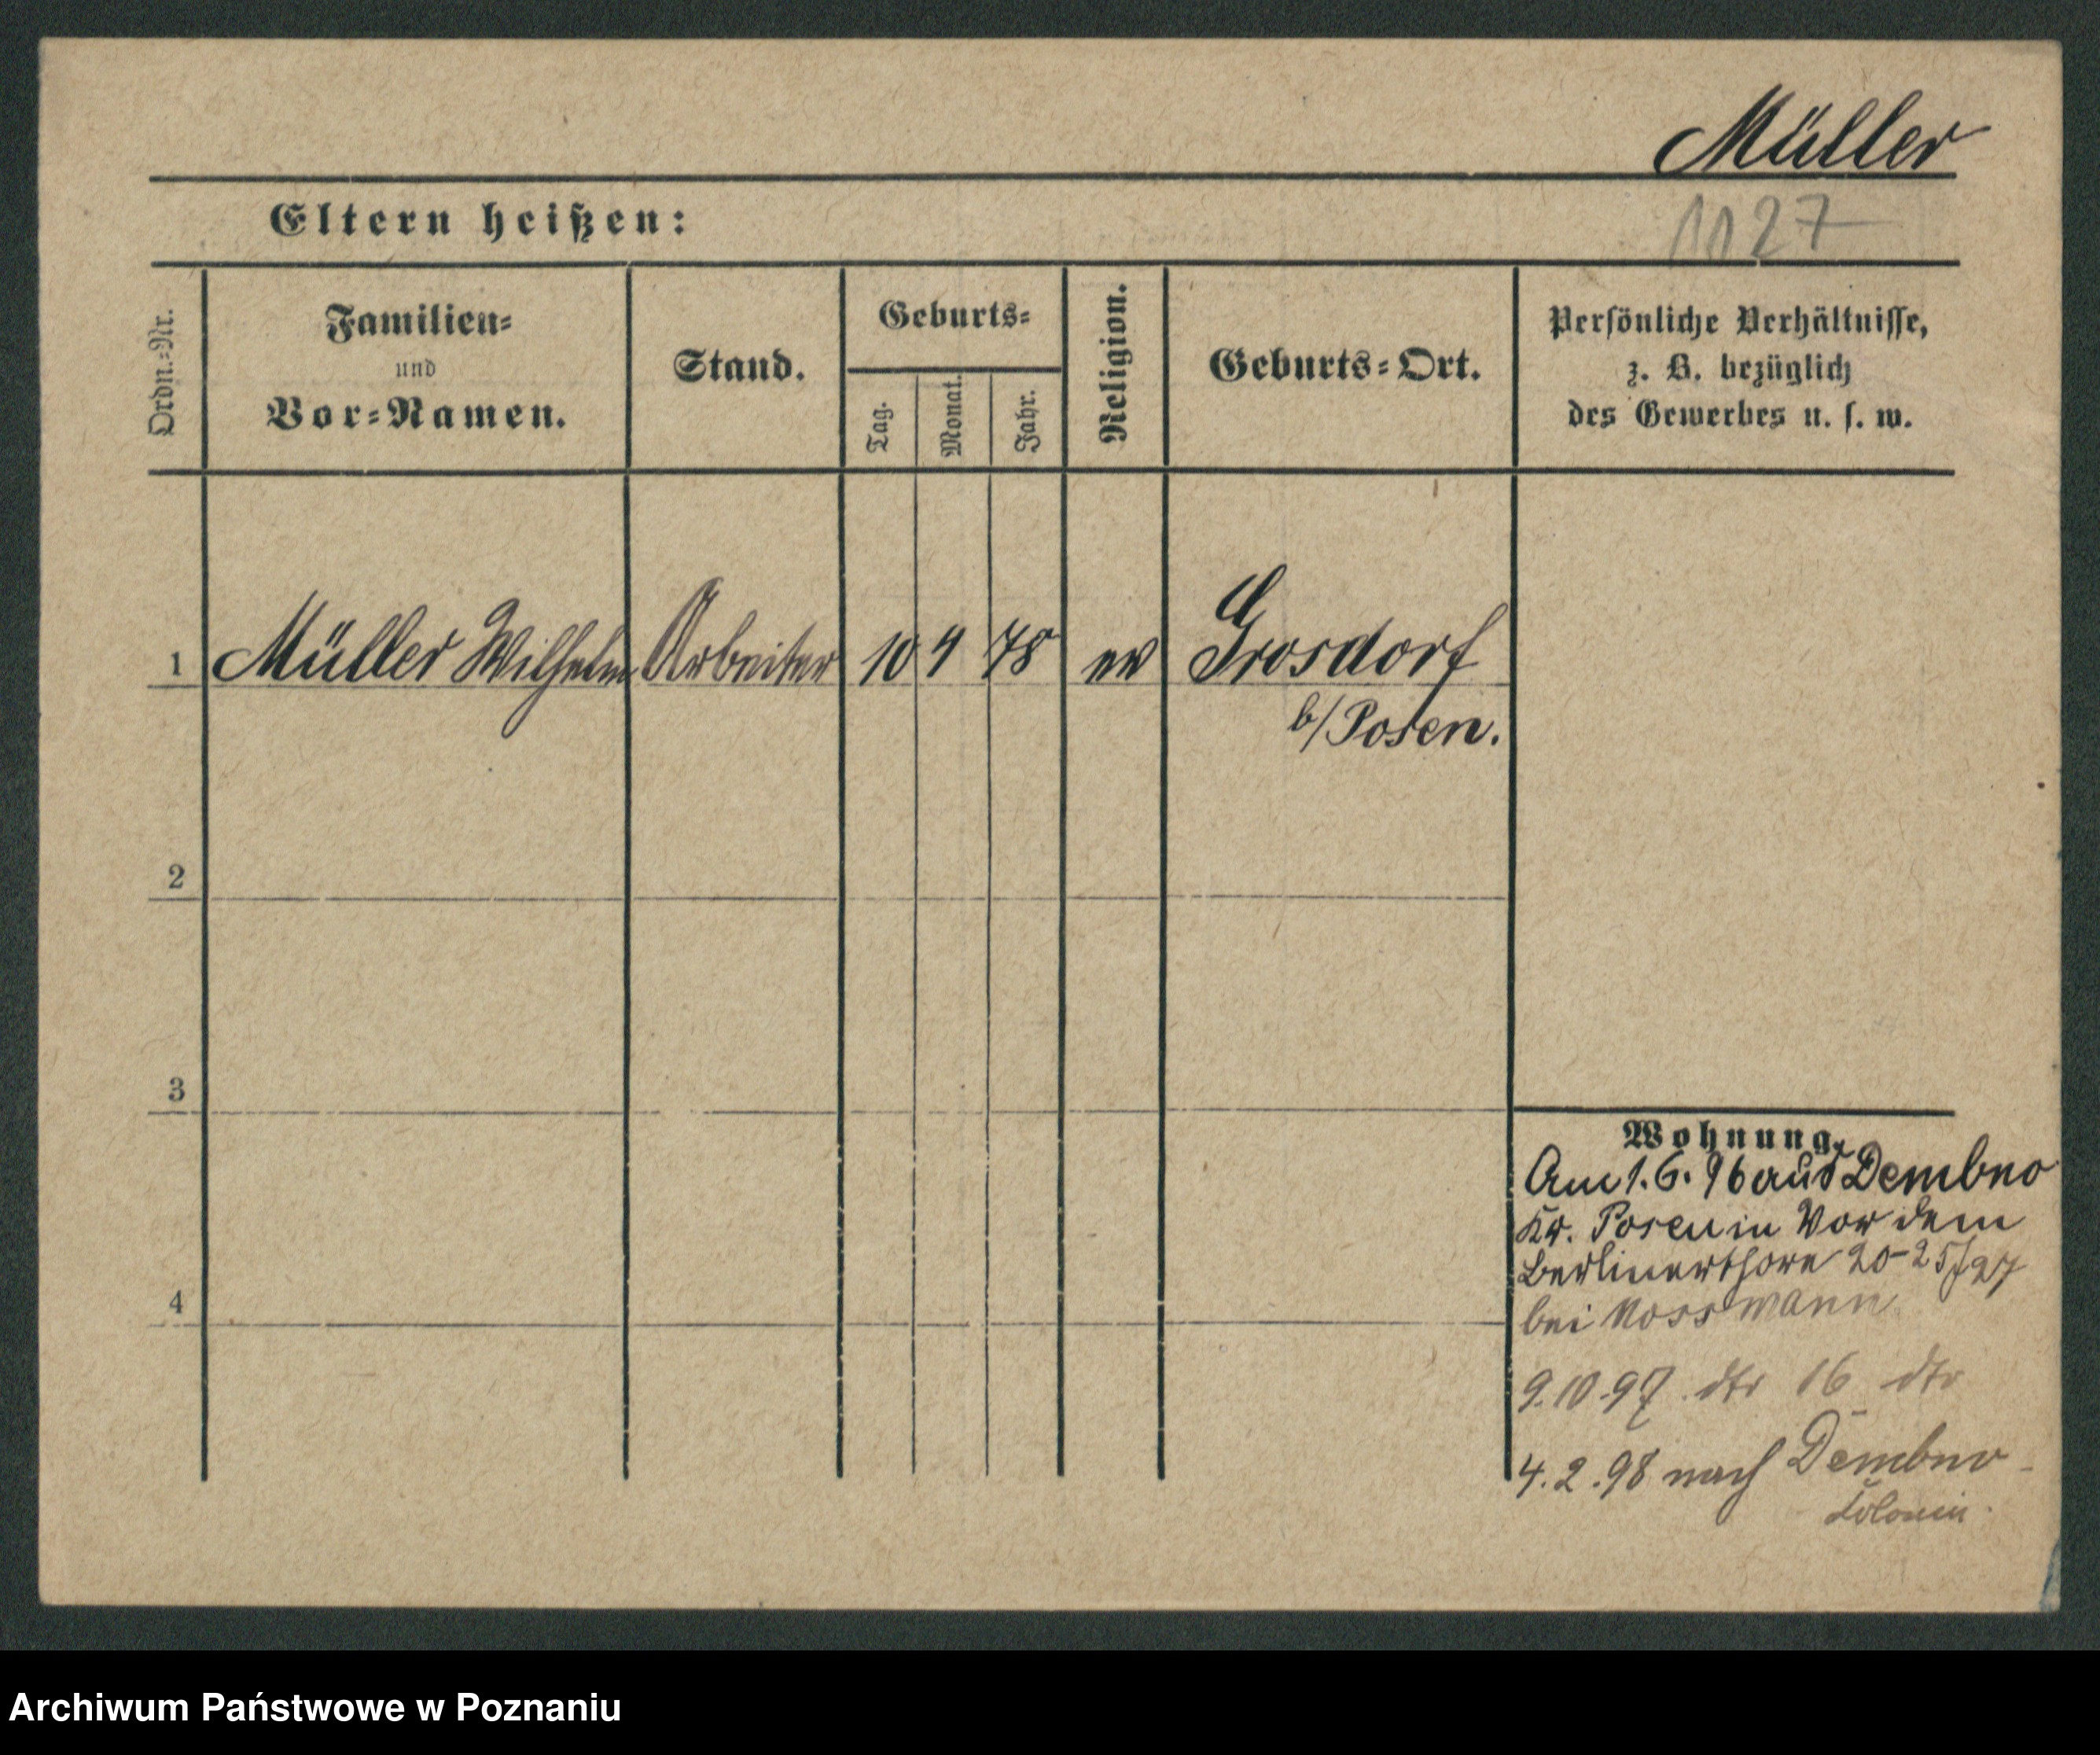 Müller
1127
Eltern heißen:
Ordn.-Nr.
Familien-
und
Vor-Namen.
Stand.
Geburts-
Tag.
Monat.
Jahr.
Religion.
Geburts-Ort.
Persönliche Verhältnisse,
z. B. bezüglich
des Gewerbes u. s. w.
1 Müller Wilhelm Arbeiter 10 4 78 ev Grosdorf
b/Posen.
2
3
4
Wohnung.
Am 1.6.96 aus Dembno
Kr. Posen in Vor dem
Berlinerthore 20-25/27
bei Nossmann
9.10.97. dto 16 dto
4.2.98 nach Dembno
Kolonie.
Archiwum Państwowe w Poznaniu